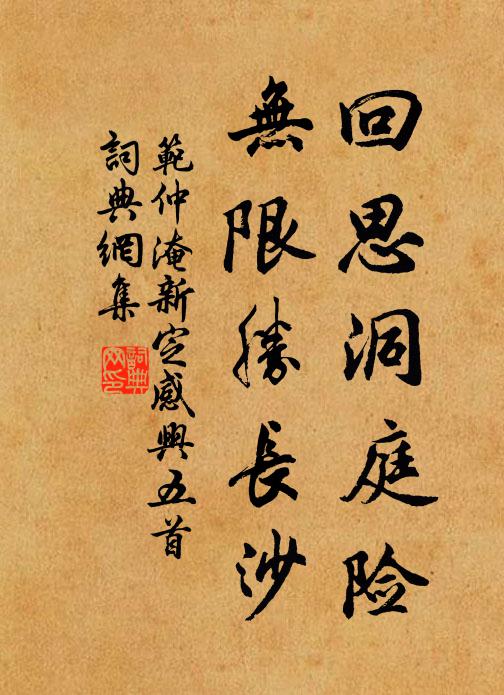 回思洞庭险
無限勝長沙
範仲淹新定感興五首
詞典網集
詞典網印